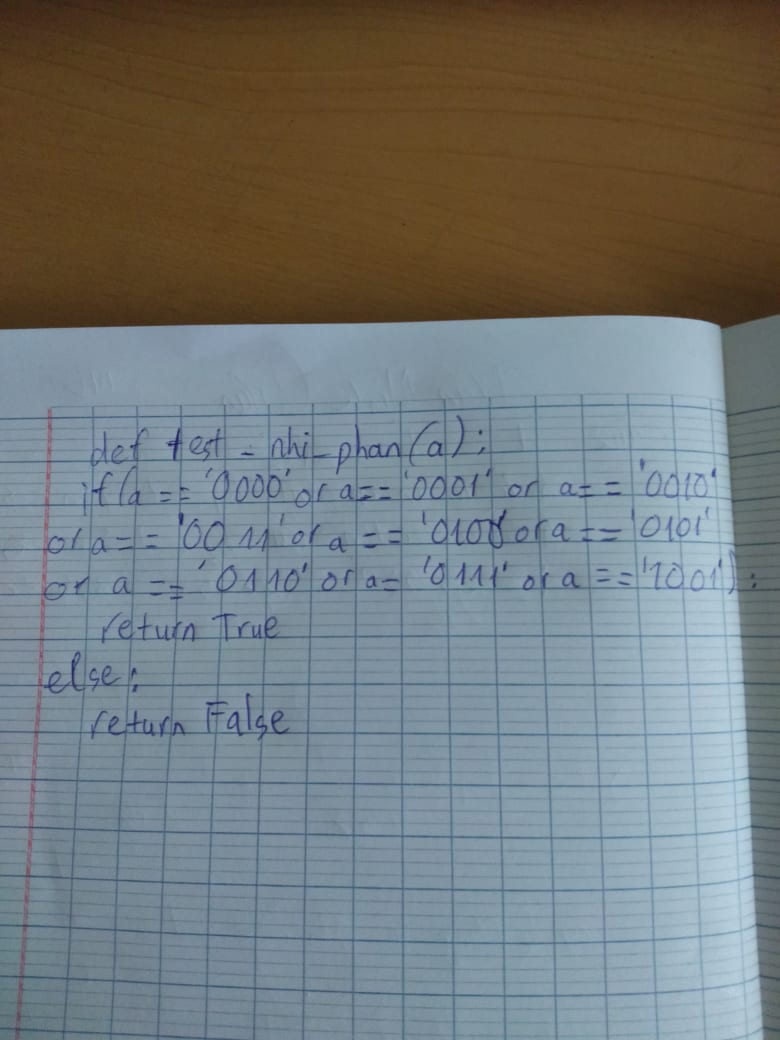 def test_nhi_phan(a):
if(a == '0000' or a == '0001' or a == '0010'
or a == '0011' or a == '0100' or a == '0101'
or a == '0110' or a = '0111' or a == '1001'):
return True
else:
return False